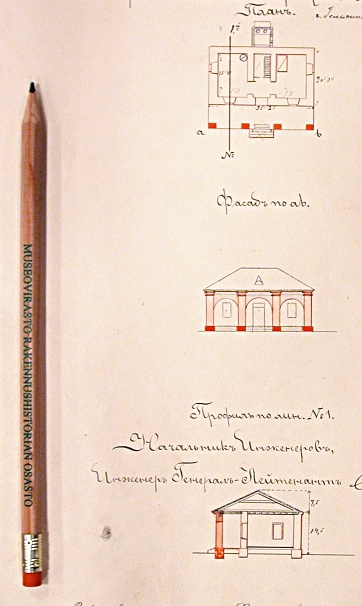 Планъ.
1.
а
в
№
Фасадъ по ав.
Профиль по лин. №1.
Начальникъ Инженеровъ,
Инженеръ Генералъ-Лейтенантъ
7,5
14,5
MUSEOVIRASTO RAKENNUSHISTORIAN OSASTO